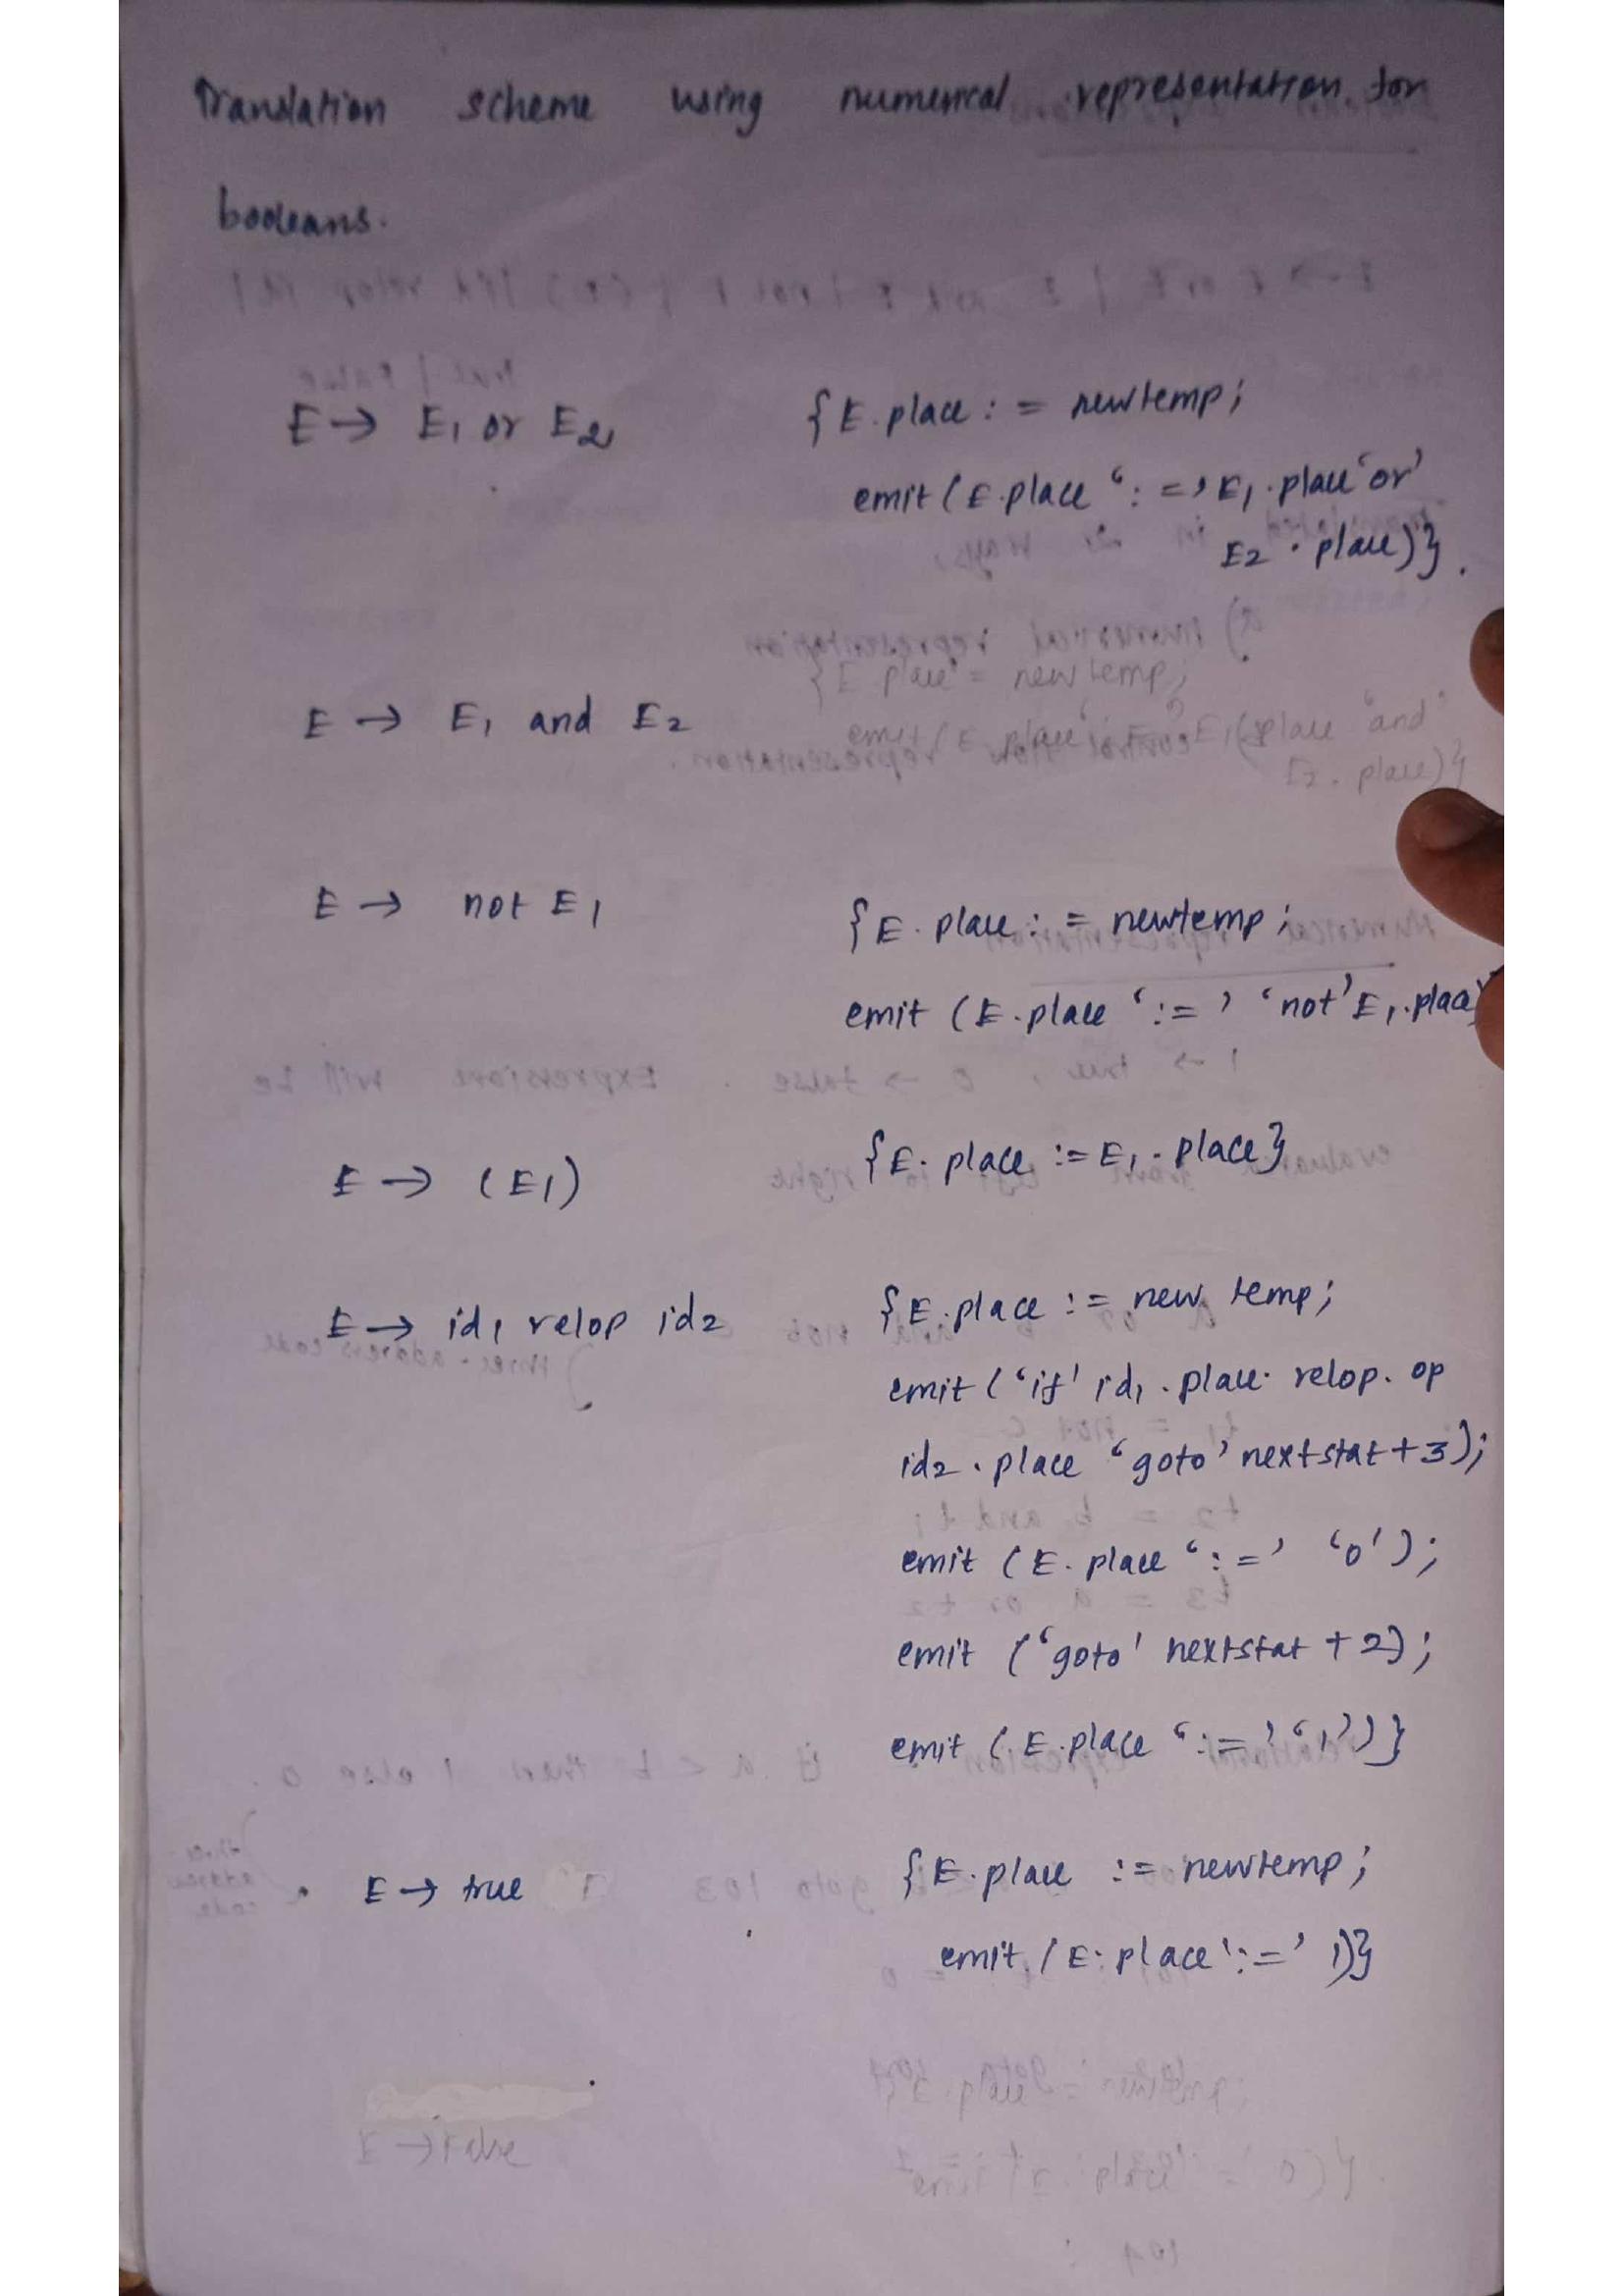 Translation scheme using numerical representation for
booleans.
E → E1 or E2 {E.place := newtemp;
emit (E.place ':=' E1.place 'or'
E2.place)}.
E → E1 and E2 {E place = newtemp;
emit (E.place := E1.place 'and'
E2.place)}
E → not E1 {E.place := newtemp;
emit (E.place ':=' 'not' E1.place)
E → (E1) {E.place := E1.place}
E → id1 relop id2 {E.place := new temp;
emit ('if' id1.place relop.op
id2.place 'goto' nextstat+3);
emit (E.place ':=' '0');
emit ('goto' nextstat + 2);
emit (E.place ':=' '1')}
E → true {E.place := newtemp;
emit (E.place ':=' 1)}
E → False